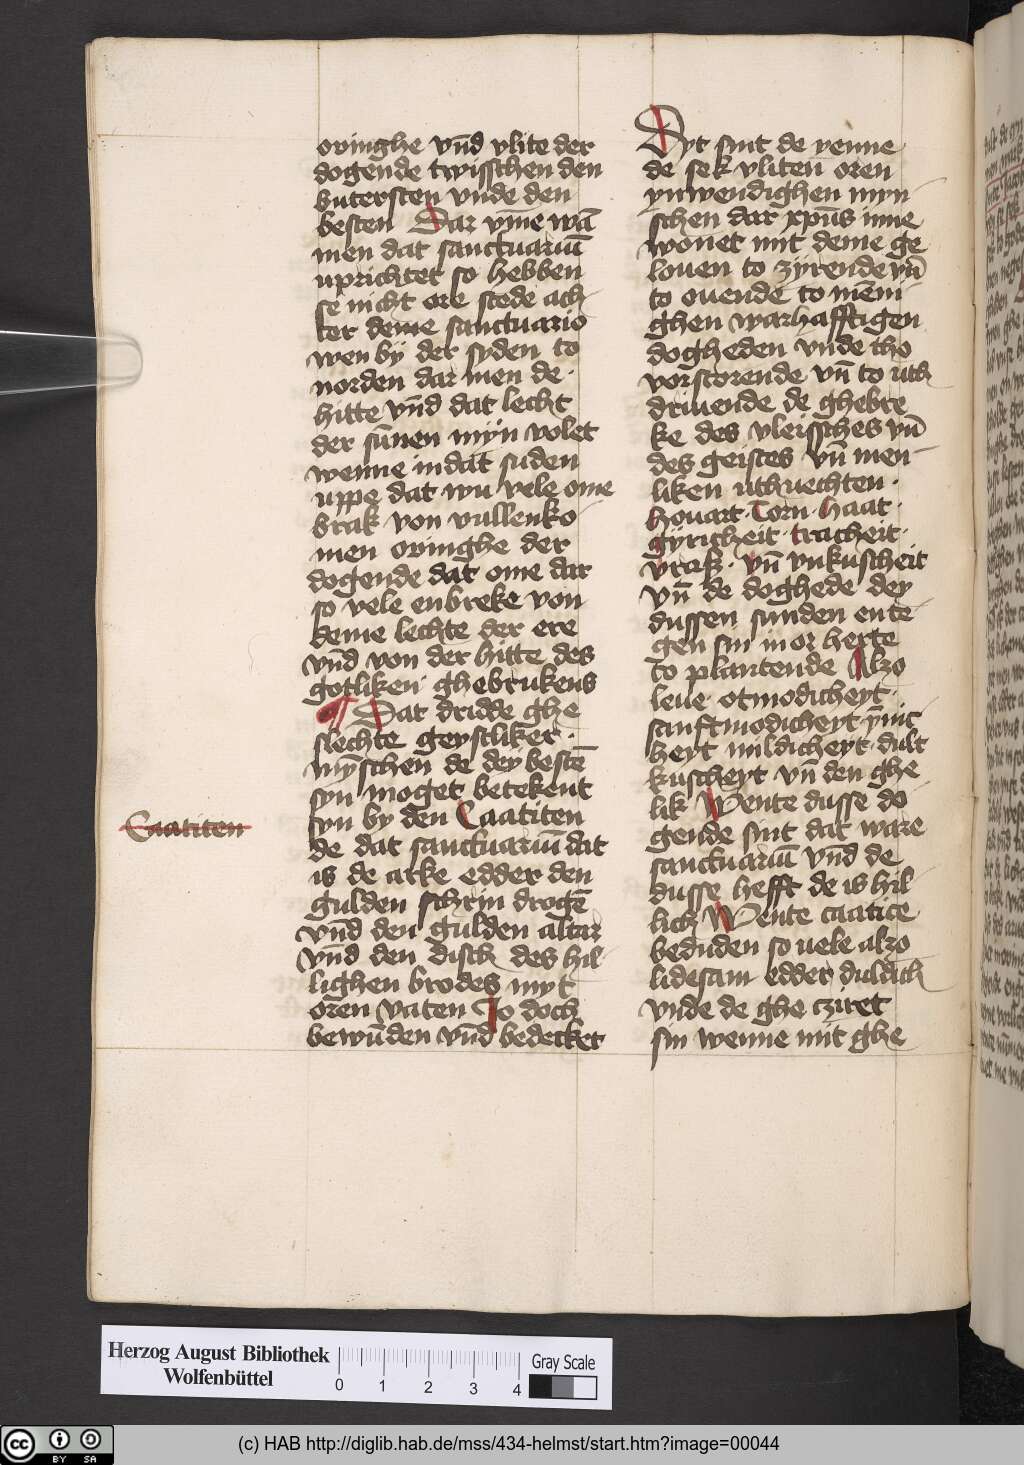 ovinghe vn̄d vlite der
dogende twisschen den
butersten vnde den
besten Dar vm̄e wā
men dat sanctuariū
uprichtet so hebben
se nicht ore stede ach
ter deme sanctuario
wen by der syden to
norden dar men de
hitte vn̄d dat lecht
der sūnen myn volet
wenne in dat suden
uppe dat wu vele ome
brak von vullenko
men ovinghe der
dogende dat ome dar
so vele enbreke von
deme lechte der ere
vn̄d von der hitte des
gotliken ghebrukens
Dat dridde ghe
slechte geystliker
mȳschen de dey beste
syn moget betekent
syn by den Caatiten
de dat sanctuariū dat
is de arke edder den
gulden schrin drogē
vn̄d den gulden altar
vn̄d den disch des hil
lighen brodes myt
oren vaten Jo doch
bewūden vn̄d bedecket
Caatiten
Dyt sint de yenne
de sek vliten oren
ynwendighen myn
schen dar xpūs inne
wonet mit deme ge
loven to zyrende vn̄
to ouende to mēni
ghen warhafftigen
dogheden vnde tho
vorstorende vn̄ to uth
drivende de ghebre
ke des vleisches vn̄
des geistes vn̄ men
liken uthvechten
houart · torn · haat ·
gyricheit · tracheit ·
vraß · vn̄ vnkuscheit
vn̄ de doghede dey
dussen sunden ente
gen sin in or herte
to plantende Alzo
leue · otmodicheyt ·
sanftmodicheyt ȳnic
heyt mildicheyt · dult
kuscheyt vn̄ den ghe
lik Wente dusse do
gende sint dat ware
sanctuariū vn̄d de
dusse hefft de is hil
lich Wente caatite
beduden so uele alzo
lidesam edder duldich
vnde de ghe cziret
sin wenne mit ghe
Herzog August Bibliothek
Wolfenbüttel
0 1 2 3 4
Gray Scale
cc BY SA
(c) HAB http://diglib.hab.de/mss/434-helmst/start.htm?image=00044